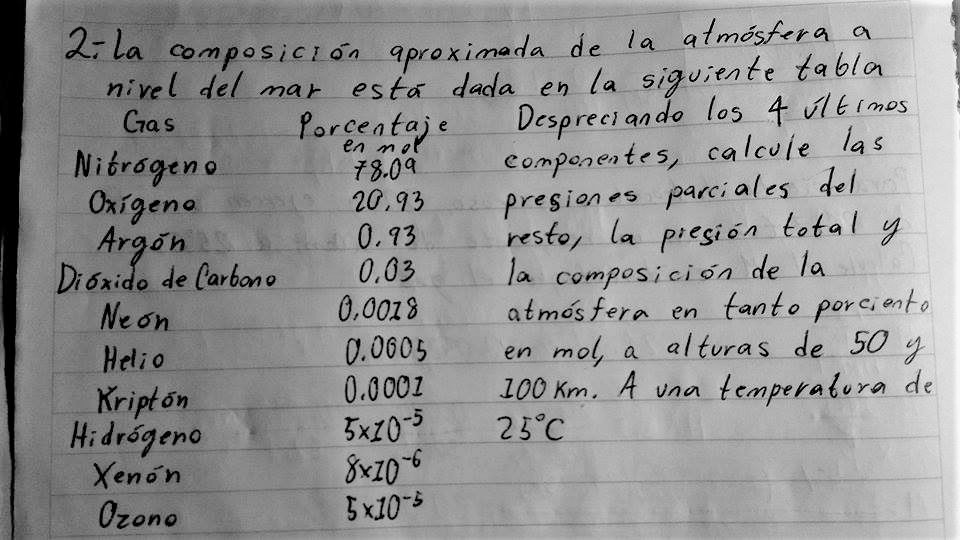 2.- La composición aproximada de la atmósfera a
nivel del mar está dada en la siguiente tabla
Gas Porcentaje en mol
Nitrógeno 78.09
Oxígeno 20.93
Argón 0.93
Dióxido de Carbono 0.03
Neón 0.0018
Helio 0.0005
Kriptón 0.0001
Hidrógeno 5x10⁻⁵
Xenón 8x10⁻⁶
Ozono 5x10⁻⁵
Despreciando los 4 últimos
componentes, calcule las
presiones parciales del
resto, la presión total y
la composición de la
atmósfera en tanto porciento
en mol, a alturas de 50 y
100 Km. A una temperatura de
25°C